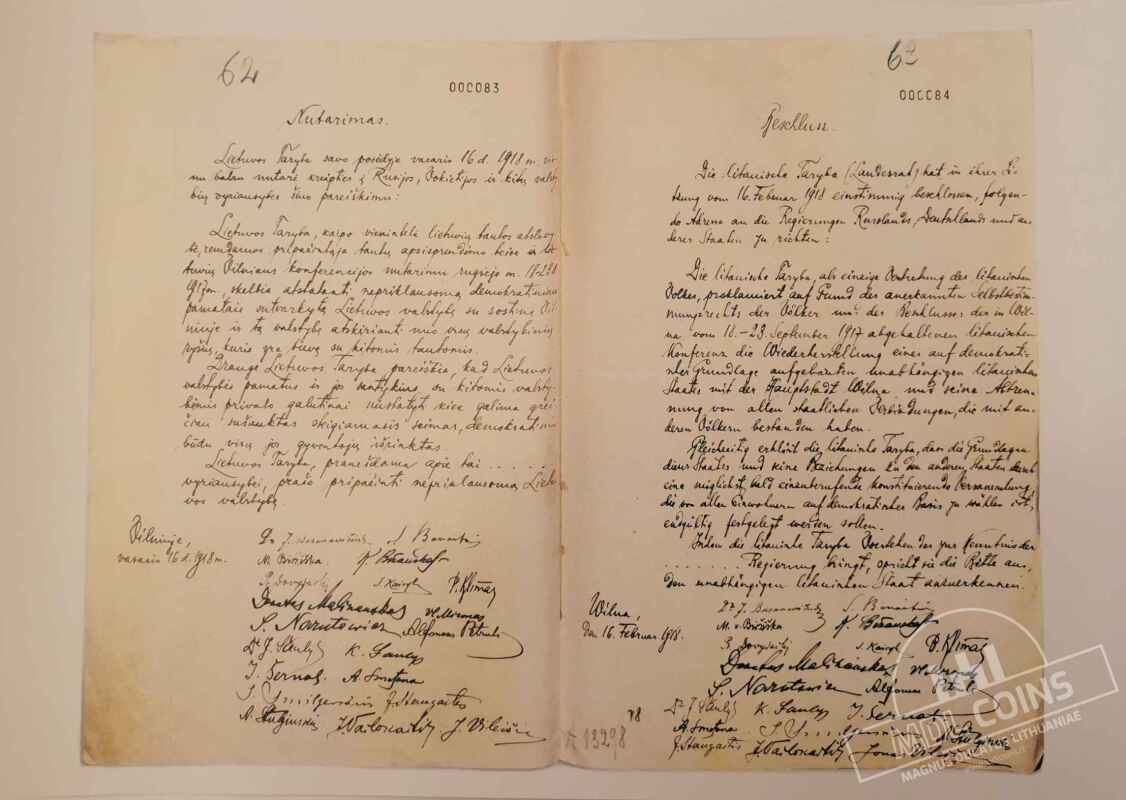 62
000083
Nutarimas.
Lietuvos Taryba savo posėdyje vasario 16 d. 1918 m. vie-
nu balsu nutarė kreiptis į Rusijos, Vokietijos ir kitų valsty-
bių vyriausybes šiuo pareiškimu:
Lietuvos Taryba, kaipo vienintelė lietuvių tautos atstovy-
bė, remdamos pripažintąja tautų apsisprendimo teise ir lie-
tuvių Vilniaus konferencijos nutarimu rugsėjo m. 18-23 d.
1917 m., skelbia atstatanti nepriklausomą demokratiniais
pamatais sutvarkytą Lietuvos valstybę su sostine Vil-
niuje ir tą valstybę atskirianti nuo visų valstybinių
ryšių, kurie yra buvę su kitomis tautomis.
Drauge Lietuvos Taryba pareiškia, kad Lietuvos
valstybės pamatus ir jos santykius su kitomis valsty-
bėmis privalo galutinai nustatyti kiek galima grei-
čiau sušauktas steigiamasis seimas, demokratiniu
būdu visų jos gyventojų išrinktas.
Lietuvos Taryba, pranešdama apie tai . . . . . .
vyriausybei, prašo pripažinti nepriklausomą Lietu-
vos valstybę.
Vilniuje,
vasario 16 d. 1918 m.
Dr. J. Basanavičius S. Banaitis
M. Biržiška K. Bizauskas
P. Dovydaitis S. Kairys P. Klimas
Donatas Malinauskas Vl. Mironas
S. Narutowicz Alfonsas Petrulis
Dr J. Šaulys K. Šaulys
J. Šernas A. Smetona
J. Smilgevičius J. Staugaitis
A. Stulginskis J. Vailokaitis J. Vileišis
63
000084
Beschluss.
Die litauische Taryba (Landesrat) hat in ihrer Sit-
zung vom 16. Februar 1918 einstimmig beschlossen, folgen-
de Adresse an die Regierungen Russlands, Deutschlands und an-
derer Staaten zu richten:
Die litauische Taryba, als einzige Vertretung des litauischen
Volkes, proklamiert auf Grund des anerkannten Selbstbestim-
mungsrechts der Völker und des Beschlusses der in Wil-
na vom 18.-23. September 1917 abgehaltenen litauischen
Konferenz die Wiederherstellung eines auf demokrati-
scher Grundlage aufgebauten unabhängigen litauischen
Staates mit der Hauptstadt Wilna und seine Abtren-
nung von allen staatlichen Verbindungen, die mit an-
deren Völkern bestanden haben.
Gleichzeitig erklärt die litauische Taryba, dass die Grundlagen
dieses Staates und seine Beziehungen zu den anderen Staaten durch
eine möglichst bald einzuberufende konstituierende Versammlung,
die von allen Einwohnern auf demokratischer Basis zu wählen ist,
endgültig festgelegt werden sollen.
Indem die litauische Taryba Vorstehendes zur Kenntnis der
. . . . . . . Regierung bringt, spricht sie die Bitte aus,
den unabhängigen litauischen Staat anzuerkennen.
Wilna,
den 16. Februar 1918.
Dr J. Basanavičius S. Banaitis
M. v. Biržiška K. Bizauskas
P. Dovydaitis S. Kairys P. Klimas
Donatas Malinauskas Vl. Mironas
S. Narutowicz Alfonsas Petrulis
Dr J. Šaulys K. Šaulys J. Šernas
A. Smetona J. Smilgevičius A. Stulginskis
J. Staugaitis J. Vailokaitis Jonas Vileišis
MDL COINS
MAGNUS DUCATUS LITHUANIAE